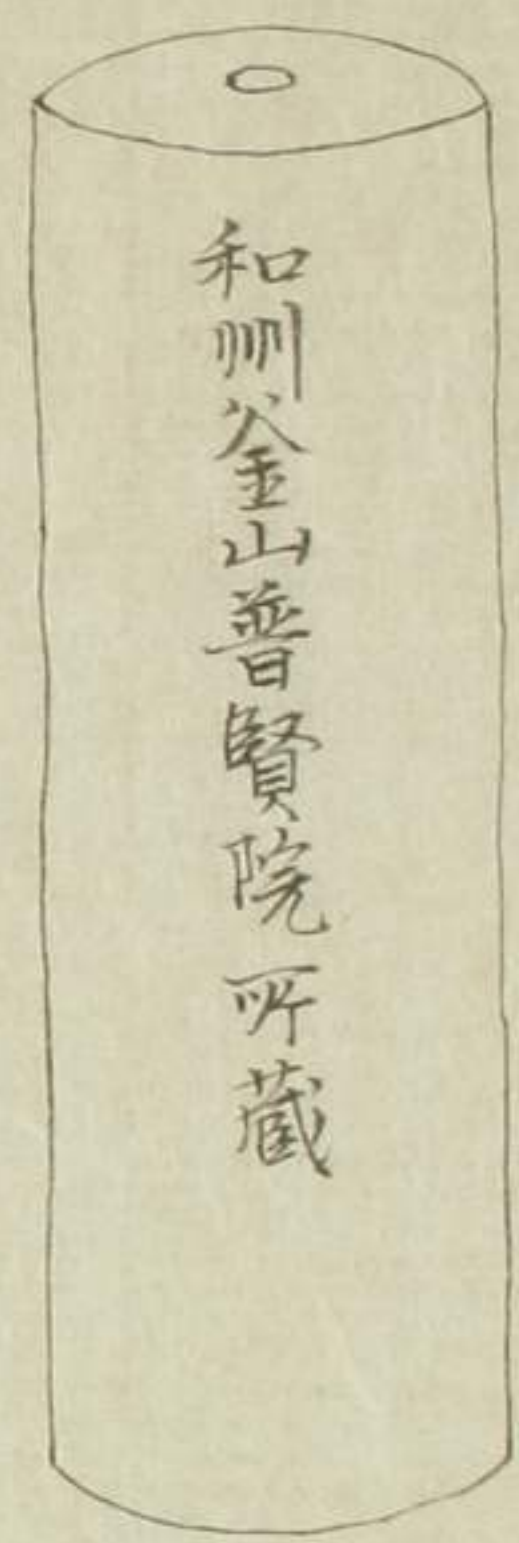 和州釜山普賢院所蔵